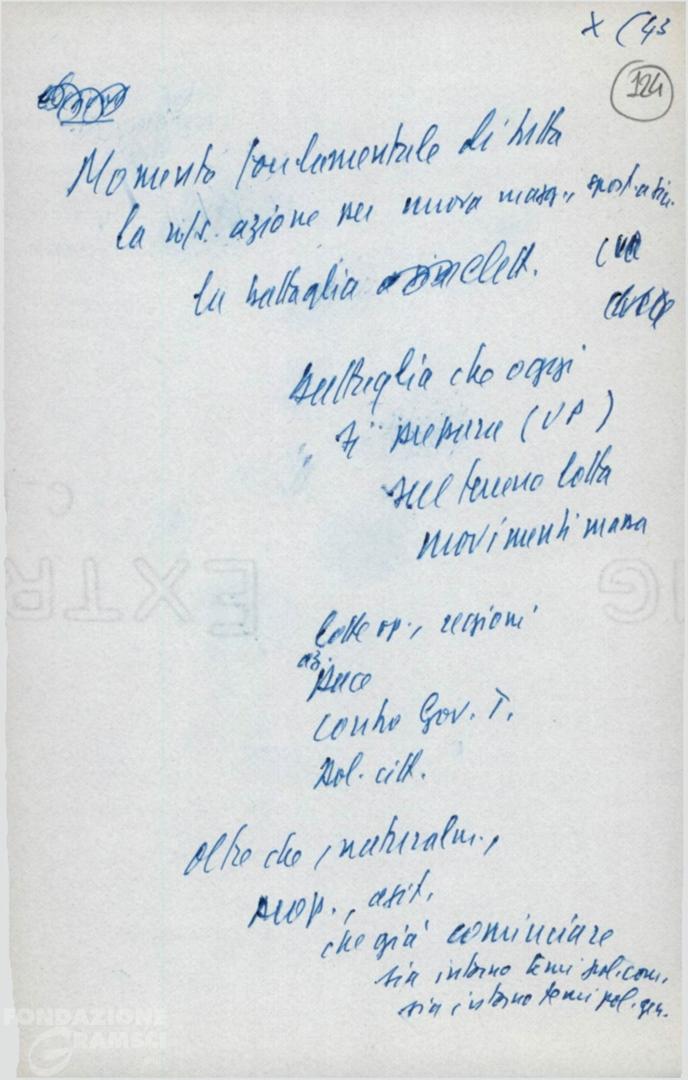 X (43
124
Momento fondamentale di tutta
la n/s. azione per nuova magg., spost. a sin.
la battaglia elett.
battaglia che oggi
si prepara (VP)
sul terreno lotta
movimenti massa
lotte op., regioni
az.
pace
contro Gov. T.
pol. citt.
oltre che, naturalm.,
prop., agit.
che già cominciare
sia intorno temi pol. com.
sia intorno temi pol. gen.
EXTR
G
FONDAZIONE
GRAMSCI